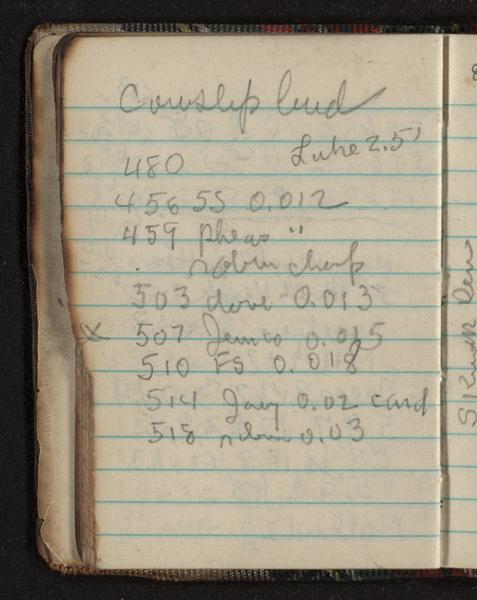 Cowslip bud
Luke 2.5'
480
456 SS 0.012
459 pheas "
robin cheep
503 dove 0.013
x 507 0.015
510 FS 0.018
514 Jay 0.02 card
518 robin 0.03